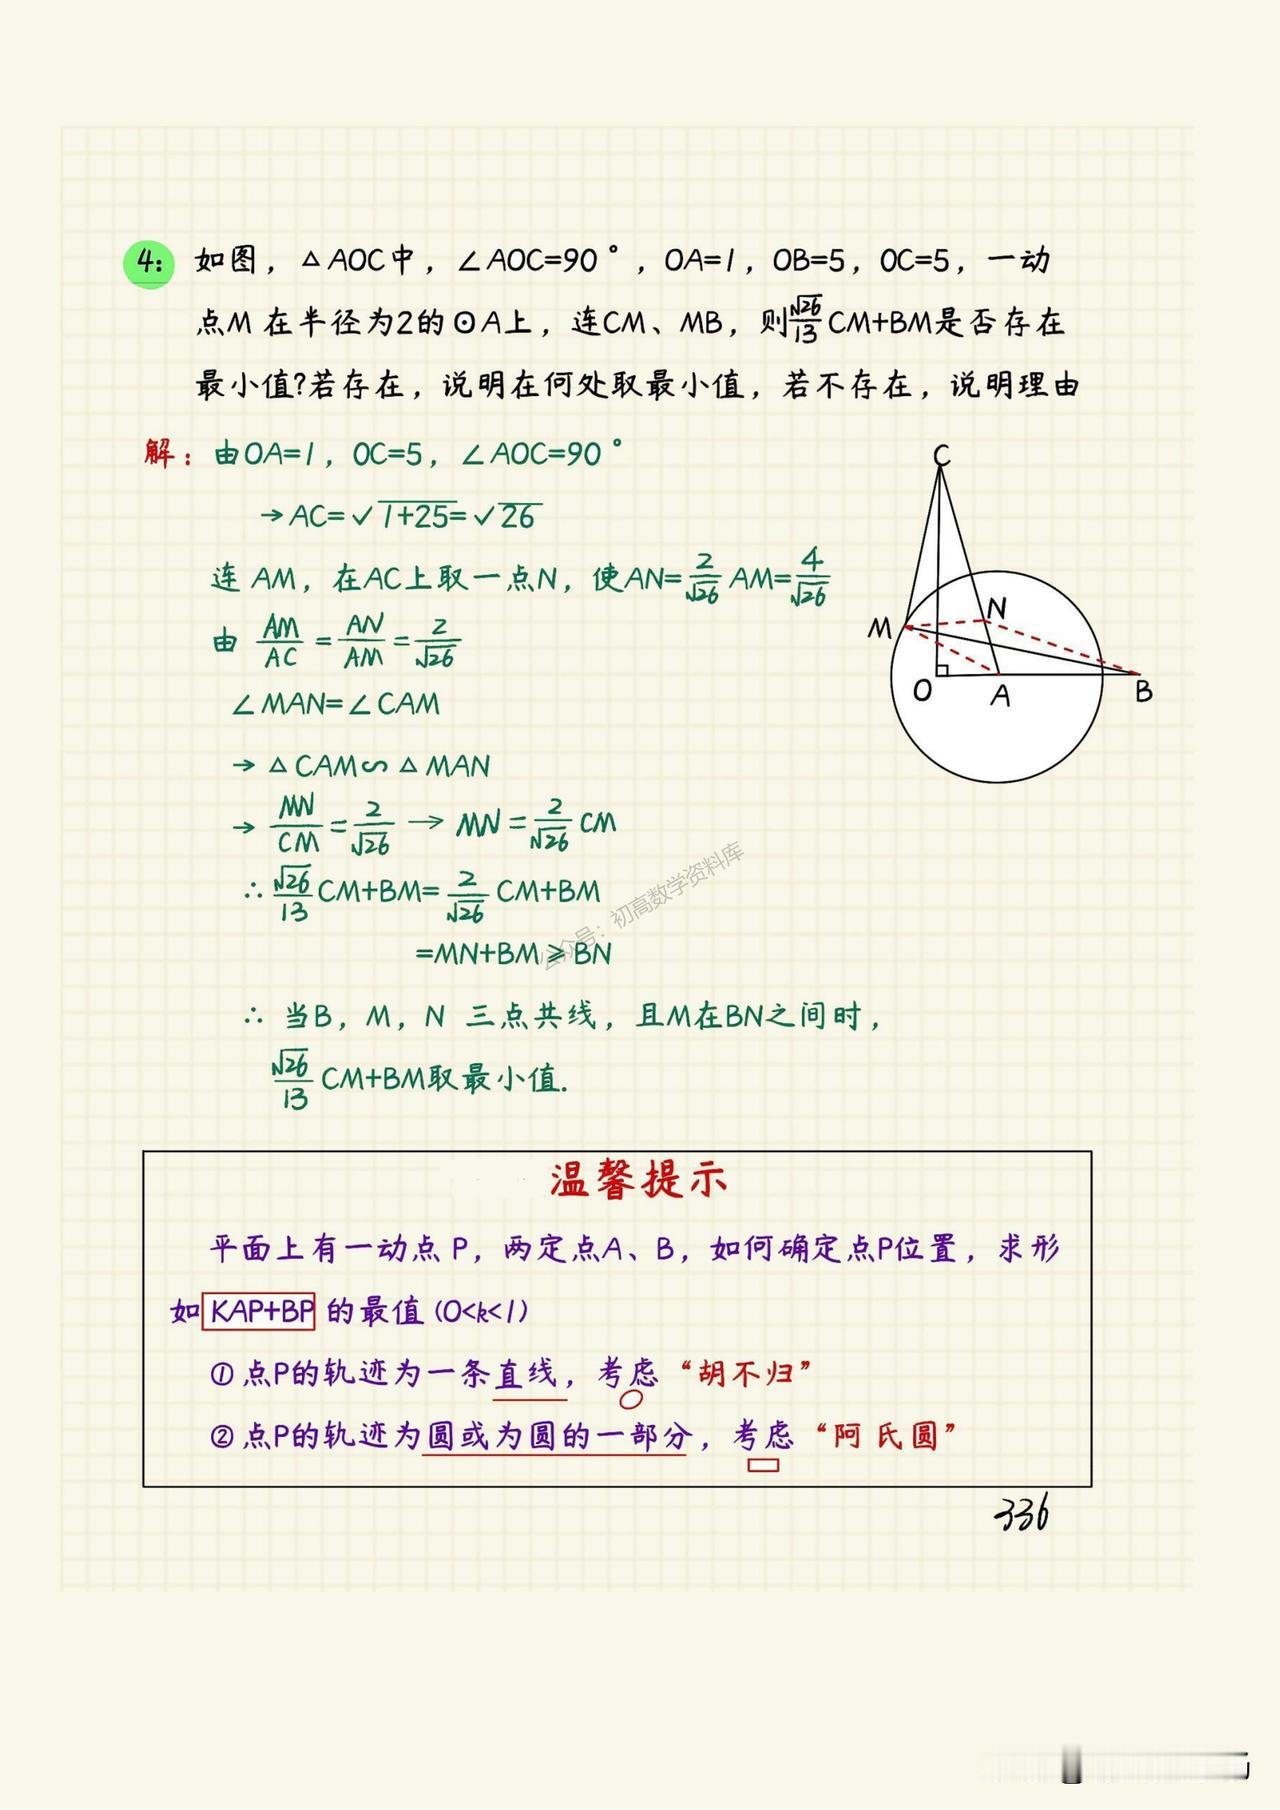 4: 如图，△AOC中，∠AOC=90°，OA=1，OB=5，OC=5，一动
点M在半径为2的⊙A上，连CM、MB，则√26/13 CM+BM是否存在
最小值?若存在，说明在何处取最小值，若不存在，说明理由
解：由OA=1，OC=5，∠AOC=90°
→AC=√1+25=√26
连 AM，在AC上取一点N，使AN=2/√26 AM=4/√26
由 AM/AC=AN/AM=2/√26
∠MAN=∠CAM
→ △CAM∽△MAN
→ MN/CM=2/√26 → MN=2/√26 CM
∴ √26/13 CM+BM=2/√26 CM+BM
=MN+BM≥BN
∴ 当B，M，N 三点共线，且M在BN之间时，
√26/13 CM+BM取最小值.
C
M
N
O
A
B
公众号：初高数学资料库
温馨提示
平面上有一动点P，两定点A、B，如何确定点P位置，求形
如KAP+BP的最值(0<k<1)
①点P的轨迹为一条直线，考虑“胡不归”
②点P的轨迹为圆或为圆的一部分，考虑“阿氏圆”
336